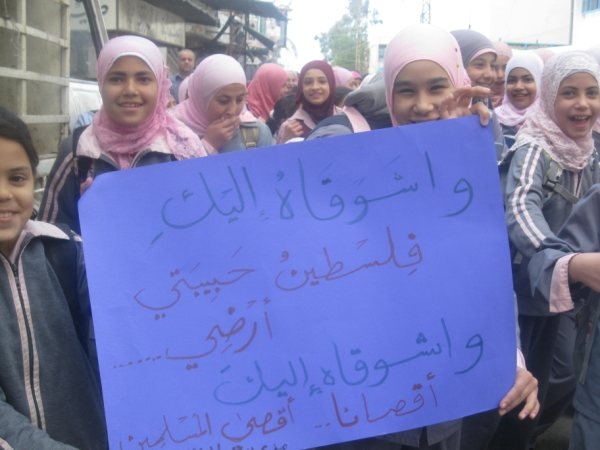 وا شَوَقَاهُ إِليَكِ
فِلسَطِينُ حَبِيبَتي
أَرْضِي......
وا شوقاه إليكَ
أقصانا.. أقصى المسلمين